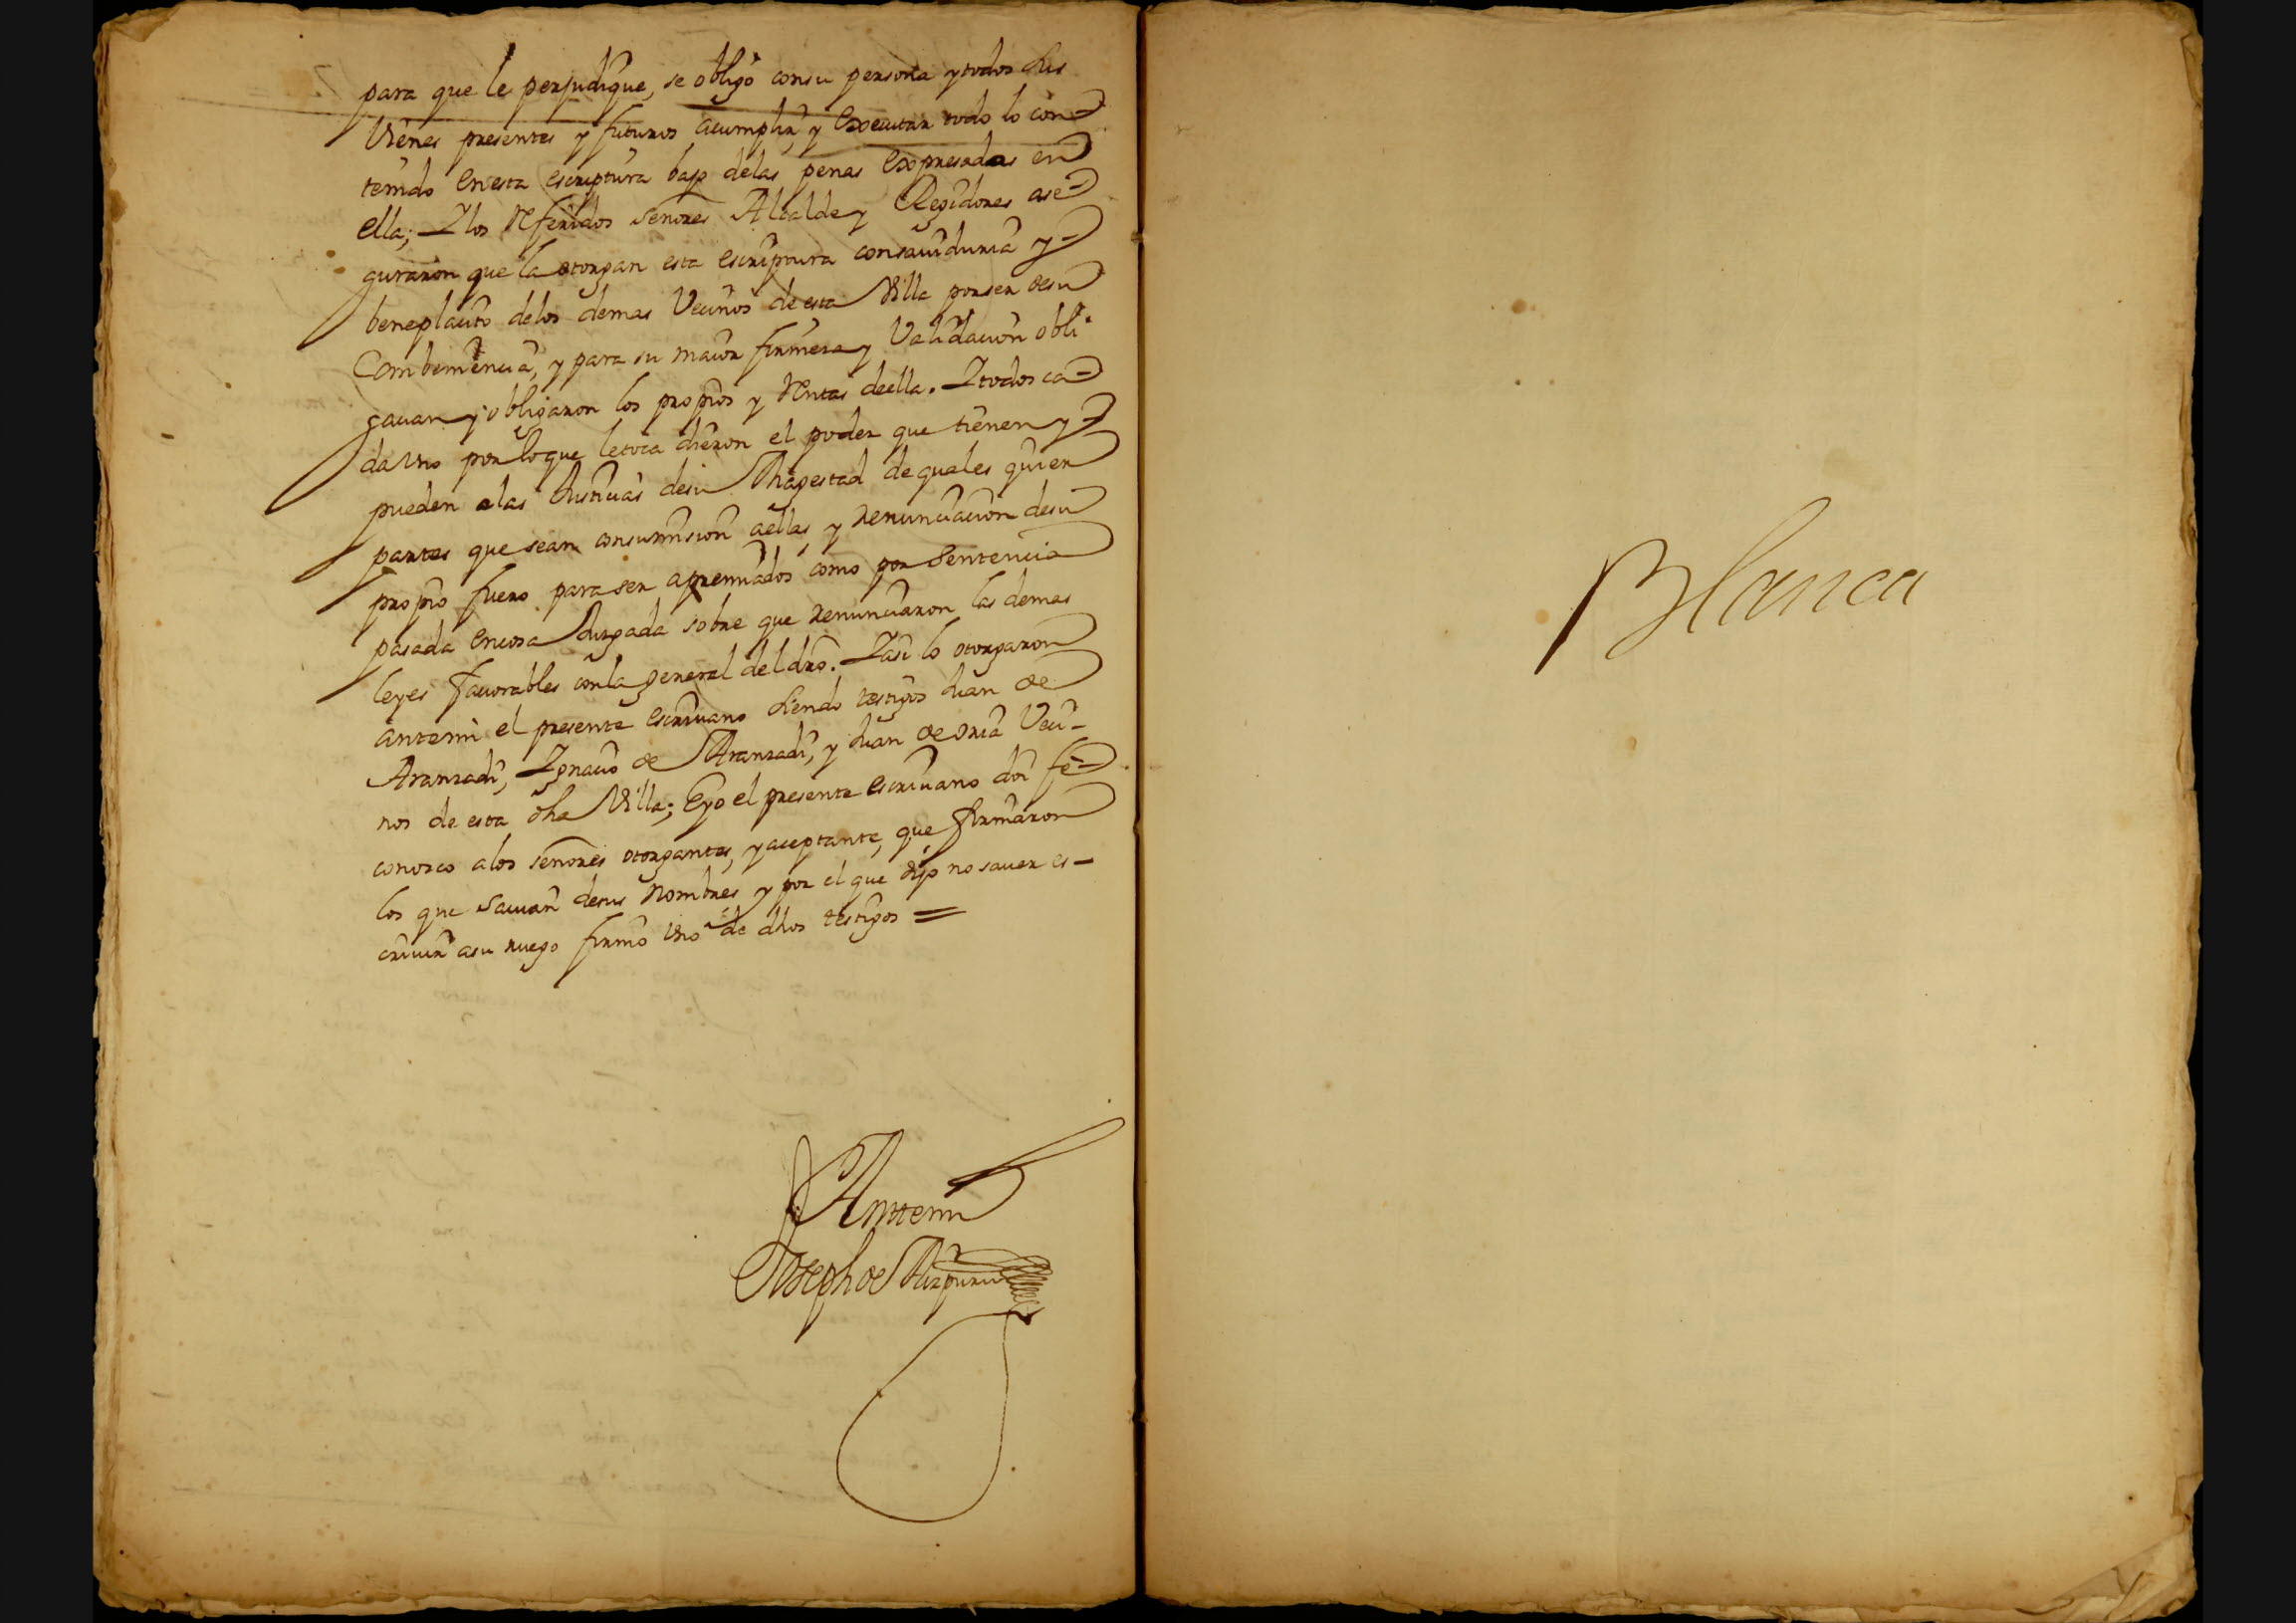 para que le perjudique, se obligó consu persona ytodos sus
vienes presentes y futuros acumplir, y executar todo lo con-
tenido enesta escriptura bajo delas penas expresadas en
ella; Ylos referidos señores Alcalde y Regidores ase-
guraron que la otorgan esta escriptura consaviduria y
beneplacito delos demas Vecinos de esta Villa porser desu
Combeniencia, y para su maior firmesa y Validacion obli-
gavan y obligaron los propios y Rentas deella. Ytodos ca-
da uno por loque letoca dieron el poder que tienen y
pueden alas Justicias desu Magestad de quales quier
partes que sean consumision aellas, y renunciacion desu
propio fuero para ser apremiados como por Sentencia
pasada encosa Jusgada sobre que renunciaron las demas
leyes favorables conla general deldro. Yasi lo otorgaron
antemi el presente escrivano siendo testigos Juan de
Aransadi, Ygnacio de Aransadi, y Juan de oria Veci-
nos de esta dha Villa; Eyo el presente escrivano doi fe
conosco alos señores otorgantes, yaceptante, que firmaron
los que savian desus Nombres y por el que dijo no saver es-
crivir asu ruego firmó uno de dhos testigos =
Anttemi
Joseph de Aizpuru
Blanca